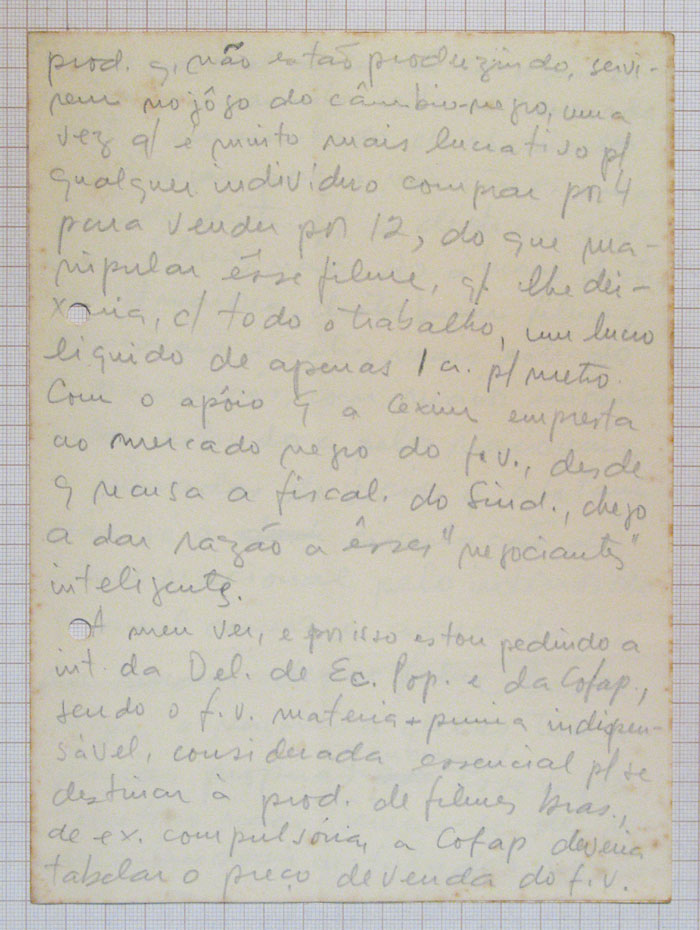 prod. q, não estão produzindo, servi-
rem no jôgo do câmbio-negro, uma
vez q/ é muito mais lucrativo p/
qualquer indivíduo comprar por 4
para vender por 12, do que ma-
nipular êsse filme, q/ lhe dei-
xaria, c/ todo o trabalho, um lucro
liquido de apenas 1 cr. p/ metro.
Com o apôio q a Cexim empresta
ao mercado negro do f.v., desde
q recusa a fiscal. do Sind., chego
a dar razão a êsses "negociantes"
inteligentes.
A meu ver, e por isso estou pedindo a
int. da Del. de Ec. Pop. e da Cofap.,
sendo o f.v. materia-prima indispen-
sável, considerada essencial p/ se
destinar à prod. de filmes bras.,
de ex. compulsória, a Cofap deveria
tabelar o preço de venda do f.v.